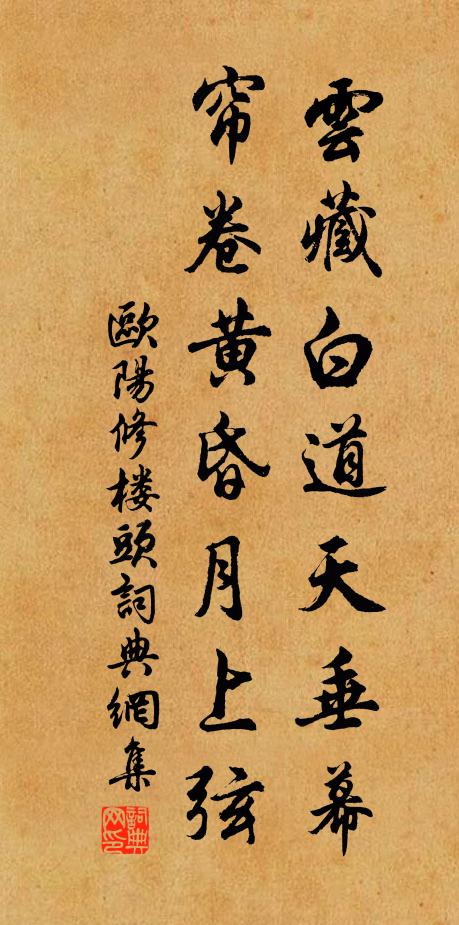 雲藏白道天垂幕
帘卷黄昏月上弦
歐陽修楼頭詞典網集
詞典网印